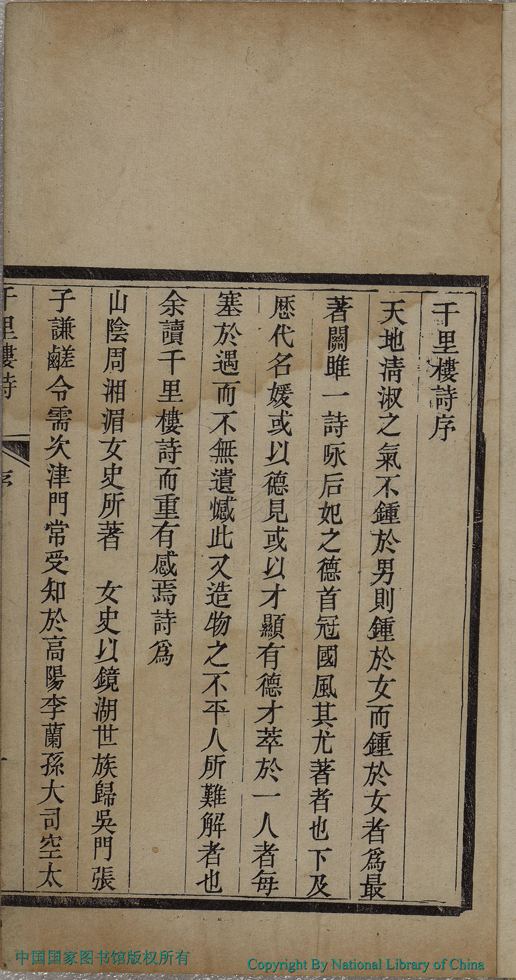 千里樓詩序
天地清淑之氣不鍾於男則鍾於女而鍾於女者爲最
著關雎一詩咏后妃之德首冠國風其尤著者也下及
歷代名媛或以德見或以才顯有德才萃於一人者每
塞於遇而不無遺憾此又造物之不平人所難解者也
余讀千里樓詩而重有感焉詩爲
山陰周湘湄女史所著　女史以鏡湖世族歸吳門張
子謙鹺令需次津門常受知於高陽李蘭孫大司空太
千里樓詩
序
一
中国国家图书馆版权所有
Copyright By National Library of China